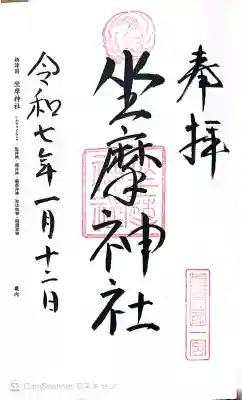 奉拝
坐摩神社
令和七年一月十二日
摂津國 坐摩神社
摂津國一宮
CamScanner でスキャン